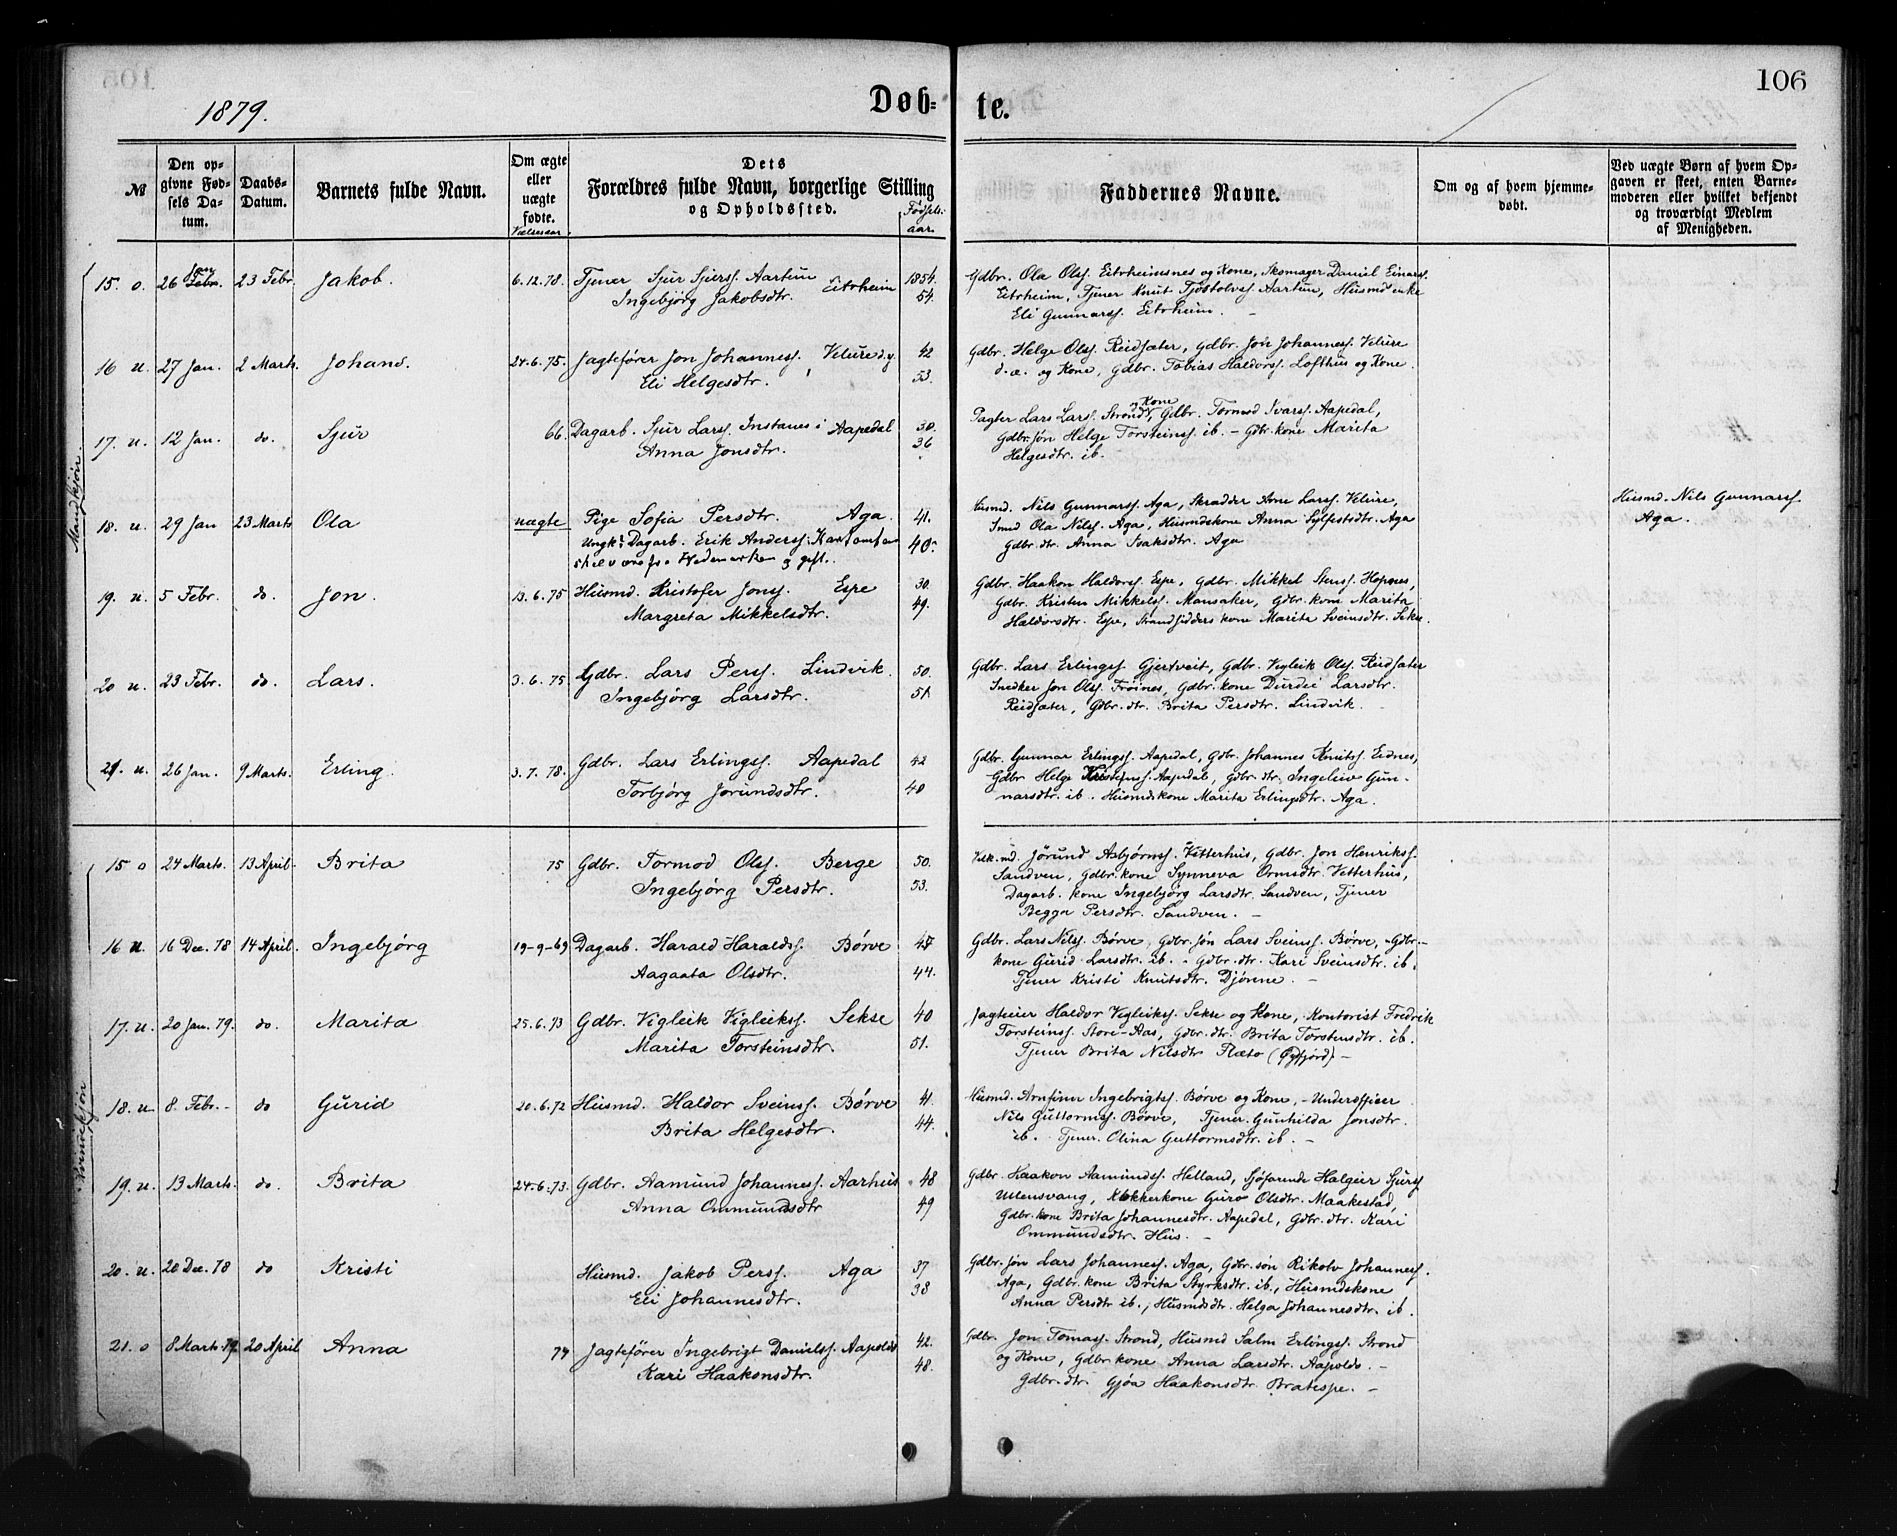 106
1879.
Døb-
te.
№
Den op-
givne Fød-
sels Da-
tum.
Daabs-
Datum.
Barnets fulde Navn.
Om ægte
eller
uægte
fødte.
Vielsesaar.
Dets
Forældres fulde Navn, borgerlige Stilling
og Opholdssted.
Fødsels-
aar.
Faddernes Navne.
Om og af hvem hjemme-
døbt.
Ved uægte Børn af hvem Op-
gaven er skeet, enten Barne-
moderen eller hvilket bekjendt
og troværdigt Medlem
af Menigheden.
Mandkjøn.
15. o. 26 Jan Febr. 23 Febr. Jakob. 6.12.78. Tjener Sjur Sjurss. Aartun Eitrheim 1854.
Ingebjörg Jakobsdtr. 54.
Gdbr. Ola Olss. Eitrheimsnes og Kone, Skomager Daniel Einarss.
Eitrheim, Tjener Knut Tjöstolvss. Aartun, Husmd enke
Eli Gunnarss. Eitrheim.
16 u. 27 Jan. 2 Marts. Johans. 24.6.75. Jagtefører Jon Johanness. Velure d.y. 42
Eli Helgesdtr. 53.
Gdbr. Helge Olss. Reidsæter, Gdbr. Jon Johanness. Velure
d.æ. og Kone, Gdbr. Tobias Haldorss. Lofthus og Kone.
17. u. 12 Jan. do. Sjur 66. Dagarb. Sjur Larss. Instanes i Aapedal 30.
Anna Jonsdtr. 36
Pagter Lars Larss. Strond og Kone, Gdbr. Tormod Ivarss. Aapedal,
Gdbr. søn Helge Torsteinss. ib. - Gdbr. kone Marita
Helgesdtr. ib.
18. u. 29 Jan 23 Marts Ola uægte Pige Sofia Persdtr. Aga. 41.
Ungk. Dagarb. Erik Anderss. 40.
Hedemarken g gift.
Husmd. Nils Gunnarss. Aga, Skrædder Arne Larss. Velure,
Smed Ola Nilss. Aga, Husmdskone Anna Sylfestsdtr. Aga
Gdbr. dtr. Anna Isaksdtr. Aga
Husmd. Nils Gunnarss.
Aga.
19. u. 5 Febr. do. Jon. 13.6.75 Husmd. Kristofer Jonss. Espe 30.
Margreta Mikkelsdtr. 49.
Gdbr. Haakon Haldorss. Espe, Gdbr. Mikkel Stenss. Hopnes,
Gdbr. Kristen Mikkelss. Mansaker, Gdbr. kone Marita
Haldorsdtr. Espe, Strandsidders kone Marita Sveinsdtr. Sekse.
20 u. 23 Febr. do. Lars. 3.6.75 Gdbr. Lars Perss. Lindvik. 50.
Ingebjörg Larsdtr. 51.
Gdbr. Lars Erlingss. Gjertveit, Gdbr. Vigleik Olss. Reidsæter
Snedker Jon Olss. Fröines, Gdbr. kone Durdei Larsdtr.
Reidsæter, Gdbr. dtr. Brita Persdtr. Lindvik.
21. u. 26 Jan. 9 Marts. Erling. 3.7.78. Gdbr. Lars Erlingss. Aapedal 42
Torbjörg Jorundsdtr. 40
Gdbr. Gunnar Erlingss. Aapedal, Gdbr. Johannes Knutss. Eidnes,
Gdbr. Helge Aapedal, Gdbr. dtr. Ingeleiv Gun-
narsdtr. ib. Husmdskone Marita Erlingsdtr. Aga.
Kvindekjøn
15 o 24 Marts. 13 April. Brita 75 Gdbr. Tormod Olss. Berge 50.
Ingebjörg Persdtr. 53.
Jörund Asbjørnss. Vetterhus, Gdbr. Jon Henrikss.
Sandven, Gdbr. kone Synneva Ormsdtr. Vetterhus,
Dagarb. kone Ingebjörg Larsdtr. Sandven, Tjener
Begga Persdtr. Sandven.
16 u. 16 Dec. 78 14 April. Ingebjörg 19-9-69 Dagarb. Harald Haraldss. Börve 47
Aagaata Olsdtr. 44.
Gdbr. Lars Nilss. Börve, Gdbr. søn Lars Sveinss. Börve, Gdbr.-
kone Gurid Larsdtr. ib. - Gdbr. dtr. Kari Sveinsdtr. ib.
Tjener Kristi Knutsdtr. Djönne. -
17. u. 20 Jan. 79. do. Marita 25.6.73 Gdbr. Vigleik Vigleikss. Sekse 40
Marita Torsteinsdtr. 51.
Jagteier Haldor Vigleikss. Sekse og Kone, Kontorist Fredrik
Torsteinss. Store-Aas, Gdbr. dtr. Brita Torsteinsdtr. ib.
Tjener Brita Nilsdtr Flæto -
18. u 8. Febr. - do Gurid 20.6.72 Husmd. Haldor Sveinss. Börve 41.
Brita Helgesdtr. 44.
Husmd. Arnfinn Ingebrigtss. Börve og Kone, - Underofficer
Nils Guttormss. Börve, Tjener. Gunhilda Jonsdtr.
ib. Tjener. Olina Guttormsdtr. ib. -
19. u. 13 Marts. do. Brita 24.6.73. Gdbr. Aamund Johanness. Aarhus 48
Anna Ommundsdtr 49
Gdbr. Haakon Aamundss. Helland, Sjøfarende Halgeir Sjurss.
Ullensvang, Klokkerkone Guro Olsdtr. Maakestad,
Gdbr. kone Brita Johannesdtr. Aapedal, Gdbr. dtr. Kari
Ommundsdtr. Hus. -
20. u. 20 Dec. 78 do Kristi Husmd. Jakob Perss. Aga 37
Eli Johannesdtr. 38
Gdbr. søn Lars Johanness. Aga, Gdbr. søn Rikolv Johanness.
Aga, Gdbr. kone Brita Styrksdtr. ib., Husmdskone
Anna Persdtr ib., Husmdsdtr. Helga Johannesdtr. ib.
21. o 8 Marts 79. 20 April Anna 74 Jagtefører Ingebrigt Danielss. Aapolds 42.
Kari Haakonsdtr. 48.
Gdbr. Jon Tomass. Strond, Husmd Salm Erlingss. Strond
og Kone, Gdbr. kone Anna Larsdtr. Aapolds. -
Gdbr. dtr. Gjöa Haakonsdtr. Bratespe. -